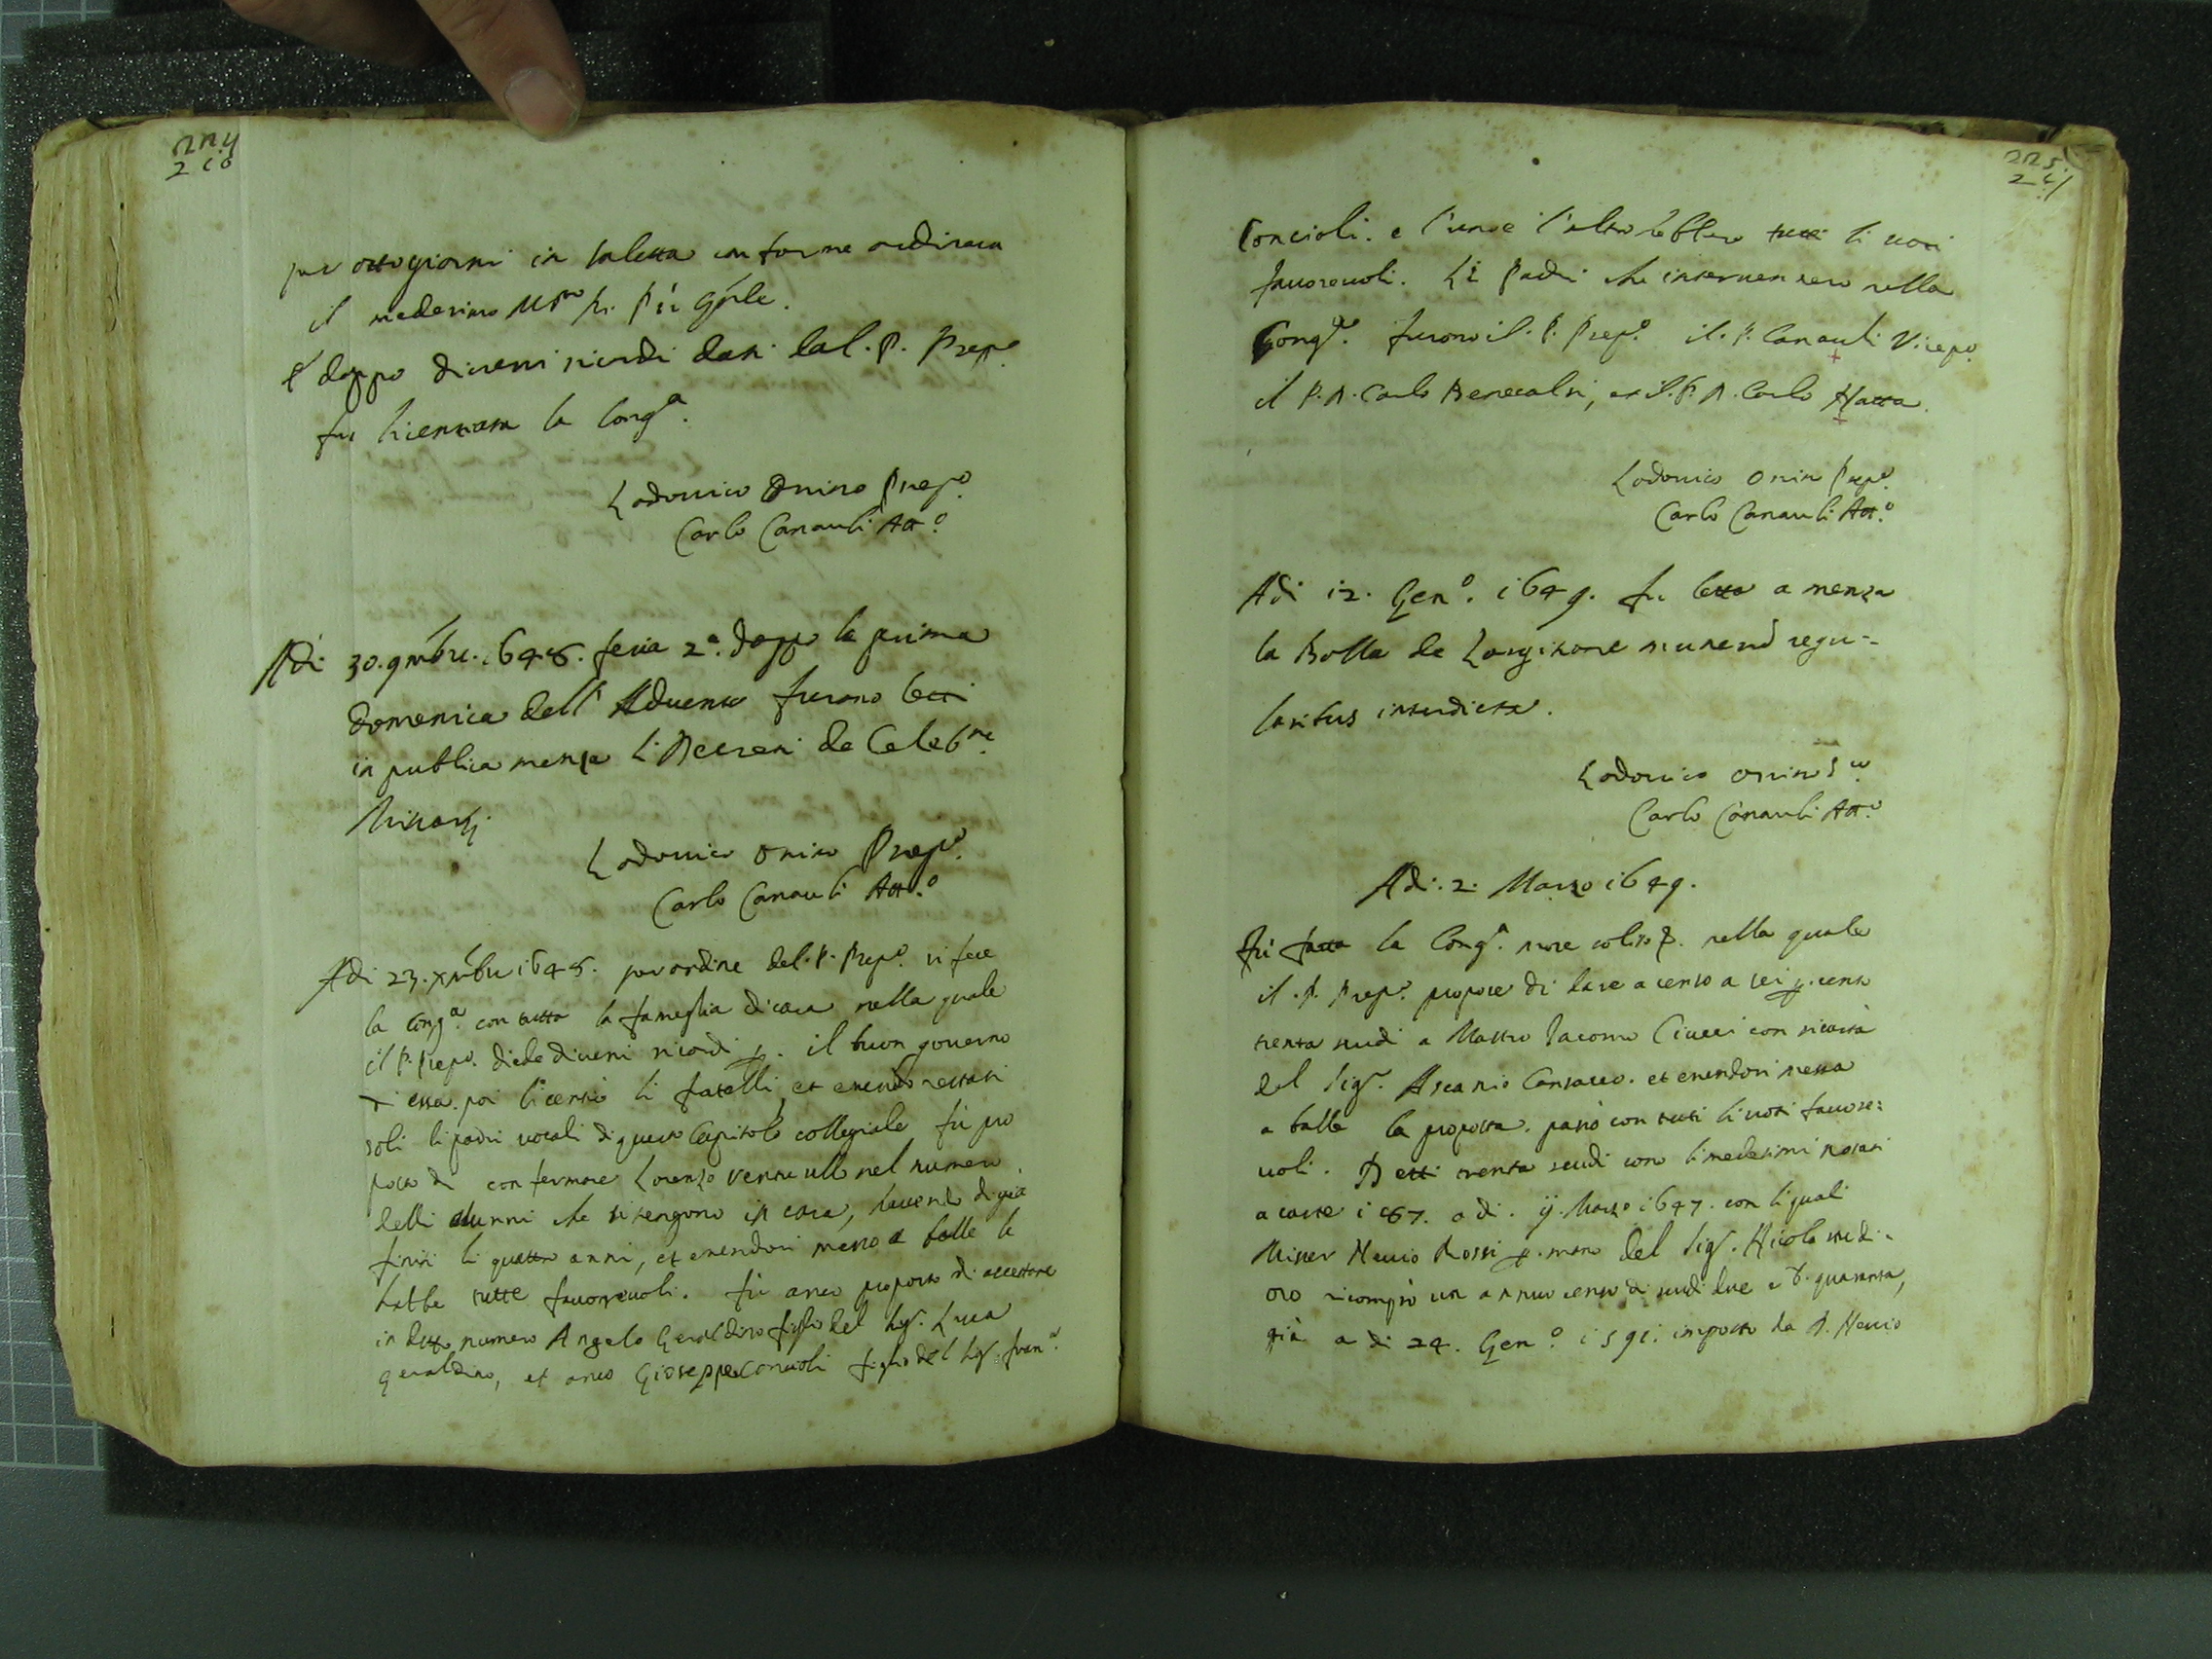 224
210
per otto giorni in saletta conforme ordinava
il medesimo
E doppo diversi ricordi dati dal. P. Prepto
fu licentiata la Congª.
Lodovico Onino Prepº.
Carlo Canauli Attº.
Adi 30. 9mbre. 1648. feria 2ª. doppo la prima
domenica dell' Advento furono letti
in publica mensa li Decreti de Celebne.
Missarū.
Lodovico Onino Prepº.
Carlo Canauli Attº.
Adi 23. xmbre 1648. per ordine del. P. Prepº. si fece
la Congª. con tutta la fameglia di casa nella quale
il P. Prepº. diede diversi ricordi p. il buon governo
di essa. poi licentiò li fratelli, et essendo restati
soli li padri vocali di questo Capitolo collegiale fù pro
posto di confermare Lorenzo nel numero
delli alunni che si tengono in casa, havendo di già
finiti li quattro anni, et essendosi messo a balle le
hebbe tutte favorevoli. fù anco proposto di accettare
in detto numero Angelo Geraldino figlio del Sigr. Luca
geraldino, et anco Gioseppe Concioli figlio del Sigr. franº.
225
211
Concioli. e l'uno e l'altro hebbero tutti li voti
favorevoli. Li Padri che intervennero nella
Congne. furono il. P. Prepº. il. P. Canauli Vicepº.
il P. D. Carlo Benecalsi, et il. P. D. Carlo Hatta.
Lodovico Onino Prepº.
Carlo Canauli Attº.
Adi 12. Genº. 1649. fu letto a menza
la Bolla de Largitione munerū regu-
laribus interdicta.
Lodovico Onino
Carlo Canauli Attº.
Adi. 2. Marzo 1649.
Fù fatta la Congª. more solito p. nella quale
il. P. Prepº. propose di dare a censo a sei p. cento
trenta scudi a Mastro Iacomo Ciucci con sicurtà
del Sigr. Ascanio et essendosi messa
a balle la proposta. passò con tutti li voti favore:
voli. Detti trenta scudi sono li medesimi notati
a carte 167. a di. ij. Marzo 1647. con li quali
Misser Nevio Rossi p. mano del Sigr. Nicolo medi-
oro ricomprò un annuo censo di scudi due e b. quaranta,
già a di 24. Genº. 1591. imposto da D. Nevio